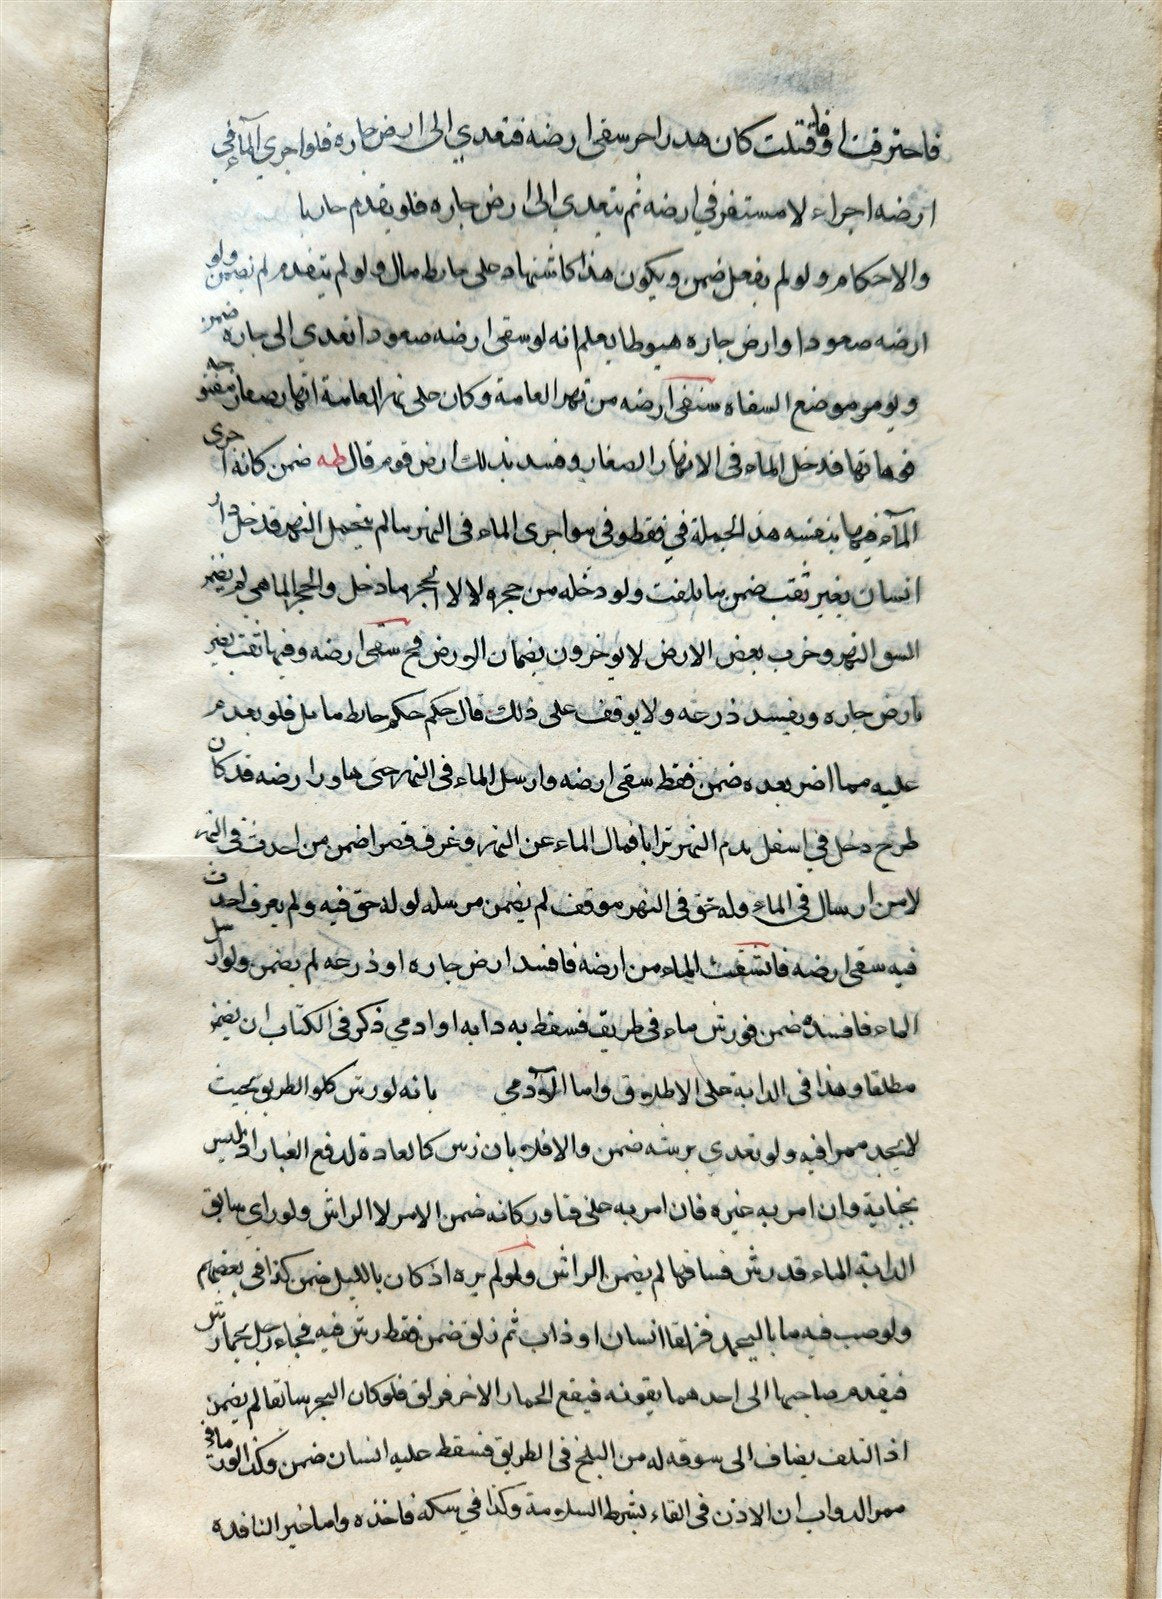 فاحترقت او قتلت كان هدرا حر سقى ارضه فتعدي الى ارض جاره فلو اجري المآء في
ارضه اجراء لا مستقر في ارضه ثم يتعدي الى ارض جاره فلو يقدم جاره
والاحكام ولو لم يفعل ضمن ويكون هذا كاشهاد على حايط مال ولو لم يتقدم لم يضمن ولو
ارضه صعودا وارض جاره هبوطا يعلم انه لو سقى ارضه صعودا تعدي الى جاره ضمن
ويومر موضع السقاه سقى ارضه من نهر العامة وكان على نهر العامة انهار صغار مفتوحه
فوهاتها فدخل المآء في الانهار الصغار وفسد بذلك ارض قوم قال طه ضمن كانه اجرى
المآء فيها بنفسه هذ الجملة في فقطو في مو اجرى الماء في النهر مالم يتحمل النهر فدخل دار
انسان بغير ثقب ضمن ما تلفت ولو دخله من حجره لا لا الحجر
النهر وخرب بعض الارض لا يوخرون بضمان الارض فج سقى ارضه وفيها ثقب يضر
بارض جاره ويفسد ذرعه ولا يوقف على ذلك قال حكم حكم حايط مايل فلو
عليه مما اضر بعده ضمن فقط سقى ارضه وارسل الماء في النهر حتى هاور ارضه قد كان
طرح دخل في اسفل النهر ترابا فمال الماء عن النهر وغرق قصرا ضمن من احدث في النهر
لا من ارسال في الماء وله حق في النهر موقف لم يضمن مرسله لو له حق فيه ولم يعرف احدث
فيه سقى ارضه فانشقت الماء من ارضه فافسد ارض جاره او ذرعه لم يضمن ولو ارسل
الماء فافسده ضمن فو رش ماء في طريق فسقط به دابه او ادمي ذكر في الكتاب ان يضمن
مطلقا وهذا في الدابة على الاطلاق واما الآدمي بانه لو رش كلو الطريق بحيث
لا يجد ممرا فيه ولو تعدي برشه ضمن والا فلا بان رش كالعادة لدفع الغبار اذ ليس
بجناية وان امر به غيره فان امر به على فناء دركانه ضمن الامر لا الراش ولو راي سابق
الدابة الماء قد رش فساقها لم يضمن الراش ولو لم يره اذ كان بالليل ضمن كذا في بعضهم
ولو صب فيه ما باليجمد فزلقا انسان او ذاب ثم زلق ضمن فقط رش فيه فجاء رجل بحمارين
فيقدم صاحبها الى احدهما يقونه فيقع الحمار الاخر فزلق فلو كان اليجر سائقا لم يضمن
اذ التلف يضاف الى سوقه له من البلخ في الطريق فسقط عليه انسان ضمن وكذا لو رماه في
ممر الدواب ان الاذن في القاء بشرط السلامة وكذا في سكة فاخذه واما غير النافده